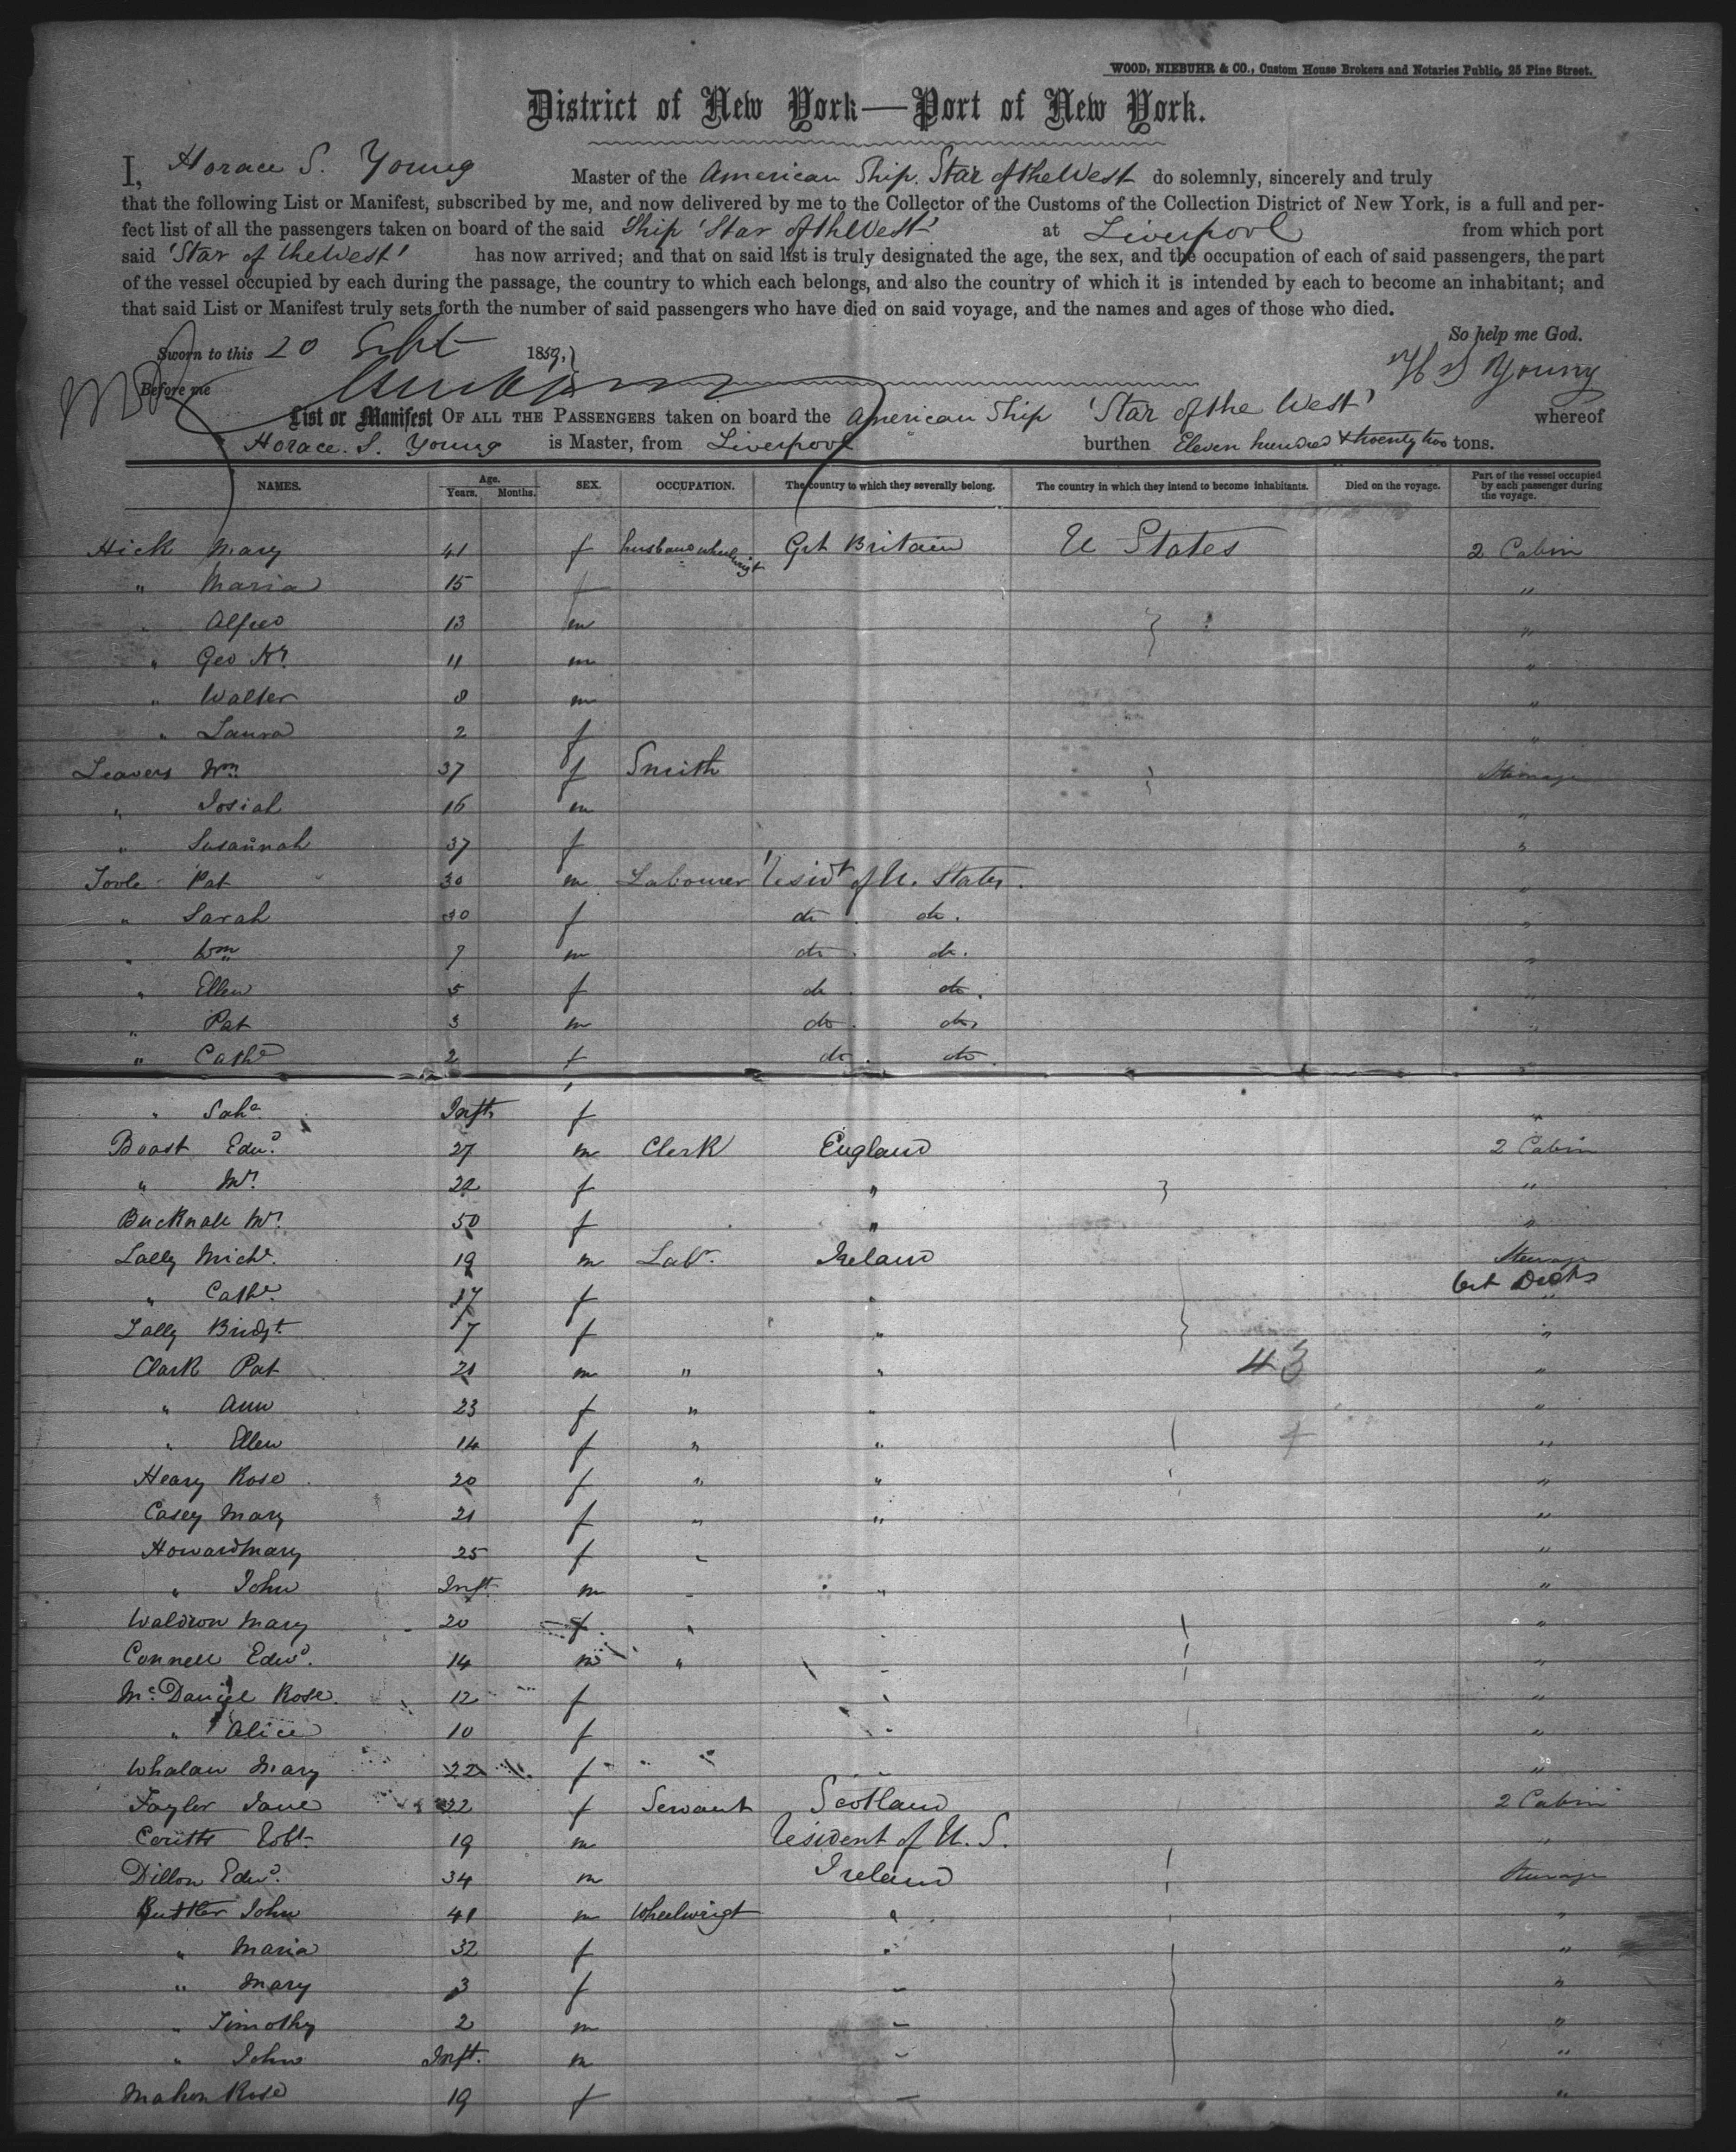 WOOD, NIEBUHR & CO., Custom House Brokers and Notaries Public, 25 Pine Street.
District of New York—Port of New York.
I, Horace S. Young Master of the American Ship. Star of the West do solemnly, sincerely and truly
that the following List or Manifest, subscribed by me, and now delivered by me to the Collector of the Customs of the Collection District of New York, is a full and per-
fect list of all the passengers taken on board of the said Ship 'Star of the West' at Liverpool from which port
said 'Star of the West' has now arrived; and that on said list is truly designated the age, the sex, and the occupation of each of said passengers, the part
of the vessel occupied by each during the passage, the country to which each belongs, and also the country of which it is intended by each to become an inhabitant; and
that said List or Manifest truly sets forth the number of said passengers who have died on said voyage, and the names and ages of those who died.
So help me God.
Sworn to this 20 Sept 1859,
H S Young
Before me
List or Manifest OF ALL THE PASSENGERS taken on board the American Ship 'Star of the West' whereof
Horace. S. Young is Master, from Liverpool burthen Eleven hundred & twenty two tons.
NAMES. Age. Years. Months. SEX. OCCUPATION. The country to which they severally belong. The country in which they intend to become inhabitants. Died on the voyage. Part of the vessel occupied by each passenger during the voyage.
Hick Mary 41 f husband wheelwrigt Grt Britain U States 2 Cabin
" Maria 15 f "
" Alfred 13 m "
" Geo Hy 11 m "
" Walter 8 m "
" Laura 2 f "
Leavers Wm 37 f Smith Steerage
" Josiah 16 m "
" Susannah 37 f "
Toole Pat 30 m Labourer Residt of U. States. "
" Sarah 30 f do. do. "
" Wm 7 m do. do. "
" Ellen 5 f do. do. "
" Pat 3 m do. do. "
" Cathe 2 f do. do. "
" Inft f "
Boast Edwd 27 m Clerk England 2 Cabin
" Mrs 22 f " "
Bucknall Mrs 50 f " "
Lally Michl. 19 m Labr. Ireland Steerage
" Cathe. 17 f " Bet Decks "
Lally Bridgt. 7 f " "
Clark Pat 21 m " " 43 "
" Ann 23 f " " "
" Ellen 14 f " " "
Heary Rose 20 f " " "
Casey Mary 21 f " " "
Howard Mary 25 f " "
" John Inft m " " "
Waldron Mary 20 f " " "
Connell Edwd. 14 m " " "
McDaniel Rose. 12 f " "
" Alice 10 f " "
Whalan Mary 22 f " " "
Taylor Jane 22 f Servant Scotland 2 Cabin
Robt 19 m Resident of U. S. "
Dillon Edwd. 34 m Ireland Steerage
Buttler John 41 m Wheelwrigt " "
" Maria 32 f " "
" Mary 3 f " "
" Timothy 2 m " "
" John Inft. m " "
Mahon Rose 19 f " "